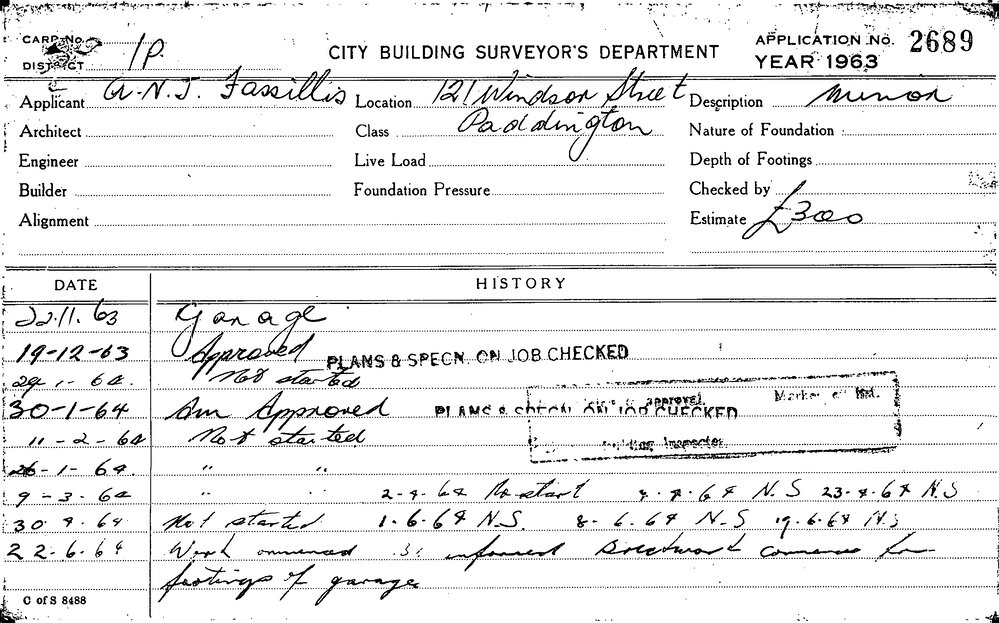 CARD No. 1P. CITY BUILDING SURVEYOR'S DEPARTMENT APPLICATION No. 2689
DISTRICT YEAR 1963
Applicant A.N.J. Fassillis Location 121 Windsor Street Description Minor
Architect Class Paddington Nature of Foundation :
Engineer Live Load Depth of Footings
Builder Foundation Pressure Checked by
Alignment Estimate £300
DATE HISTORY
22.11.63 Garage
19-12-63 Approved PLANS & SPECN. ON JOB CHECKED
29-1-64. Not started
30-1-64 Am Approved PLANS & SPECN. ON JOB CHECKED approval. Marked off list.
11-2-64 Not started Building Inspector
26-1-64. " "
9-3-64 " " 2-4-64 No start 4.4.64 N.S 23.4.64 N.S
30 4.64 Not started 1.6.64 N.S. 8.6.64 N.S 19.6.64 N.S
22.6.64 Work commenced informed commence for
footings of garage
C of S 8488